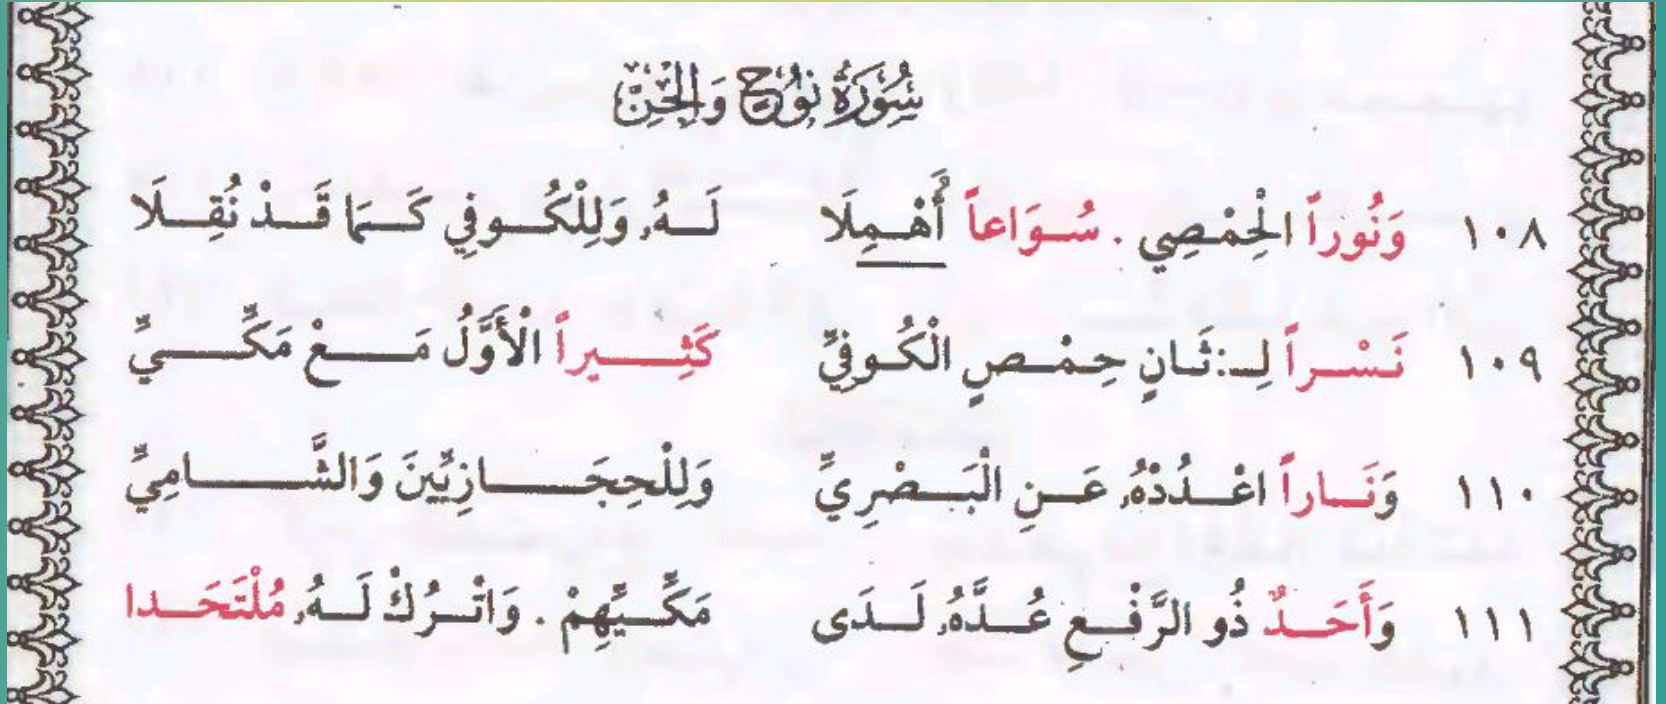 سُورَةُ نُوحٍ وَالْجِنِّ
١٠٨ وَنُوراً الْحِمْصِي . سُوَاعاً أُهْمِلَا لَهُ، وَلِلْكُوفِي كَمَا قَدْ نُقِلَا
١٠٩ نَسْراً لِـ:ثَانٍ حِمْصٍ الْكُوفِيِّ كَثِيراً الْأَوَّلُ مَعْ مَكِّيِّ
١١٠ وَنَاراً اعْدُدْهُ، عَنِ الْبَصْرِيِّ وَلِلْحِجَازِيِّينَ وَالشَّامِيِّ
١١١ وَأَحَدٌ ذُو الرَّفْعِ عُدَّهُ، لَدَى مَكِّيِّهِمْ . وَاتْرُكْ لَهُ، مُلْتَحَدا